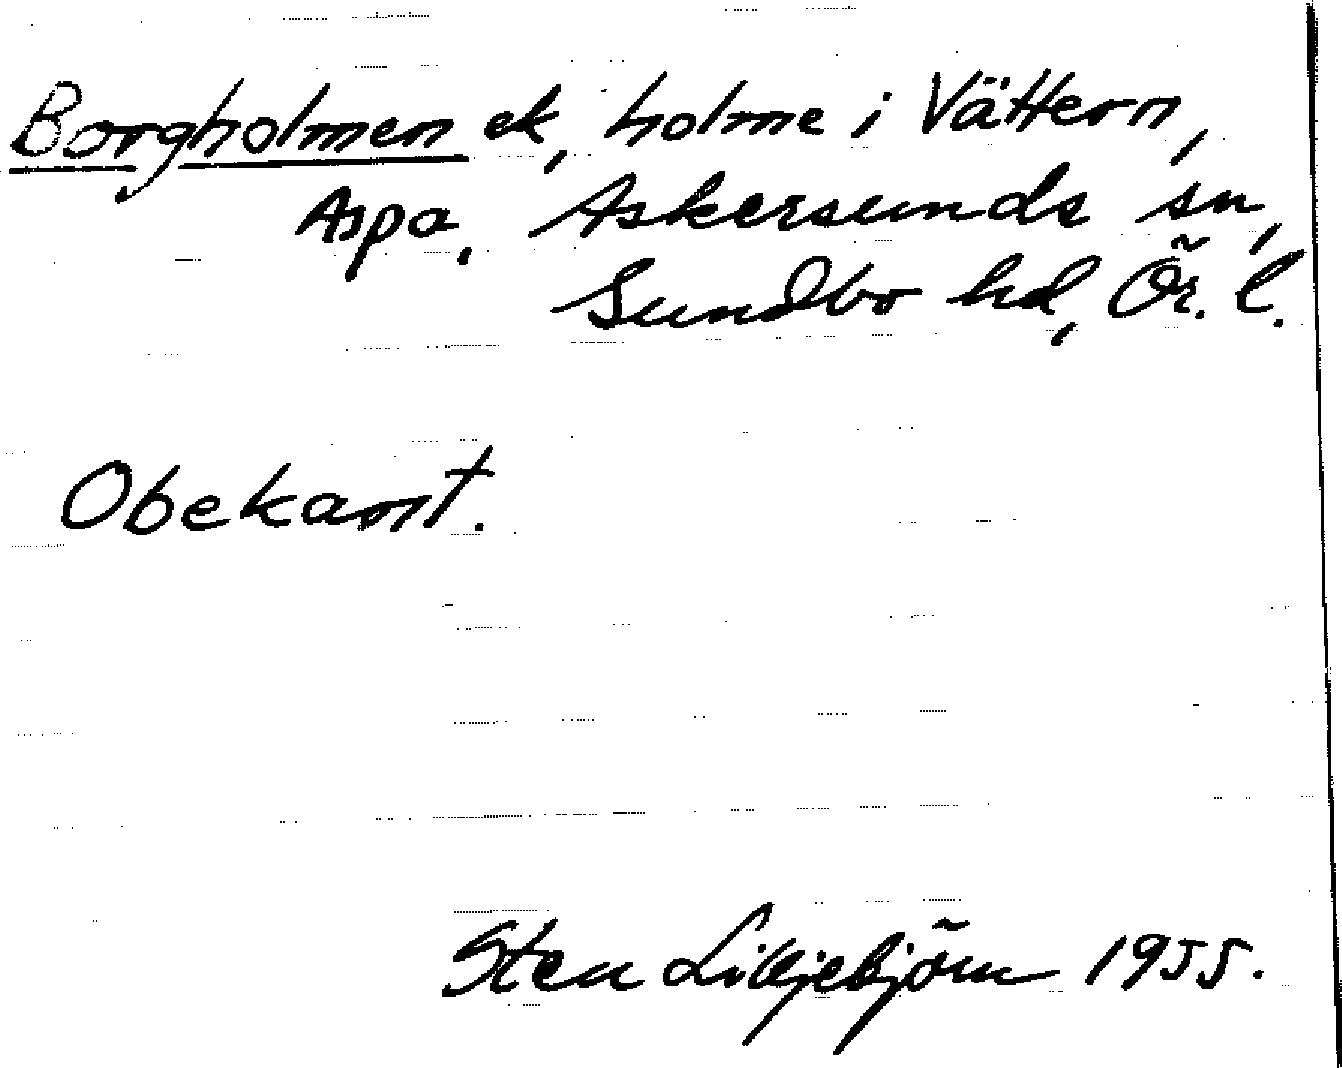 Borgholmen ek, holme i Vättern,
Aspa, Askersunds sn,
Sundbo hd, Ör. l.
Obekant.
Sten Lilljebjörn 1955.